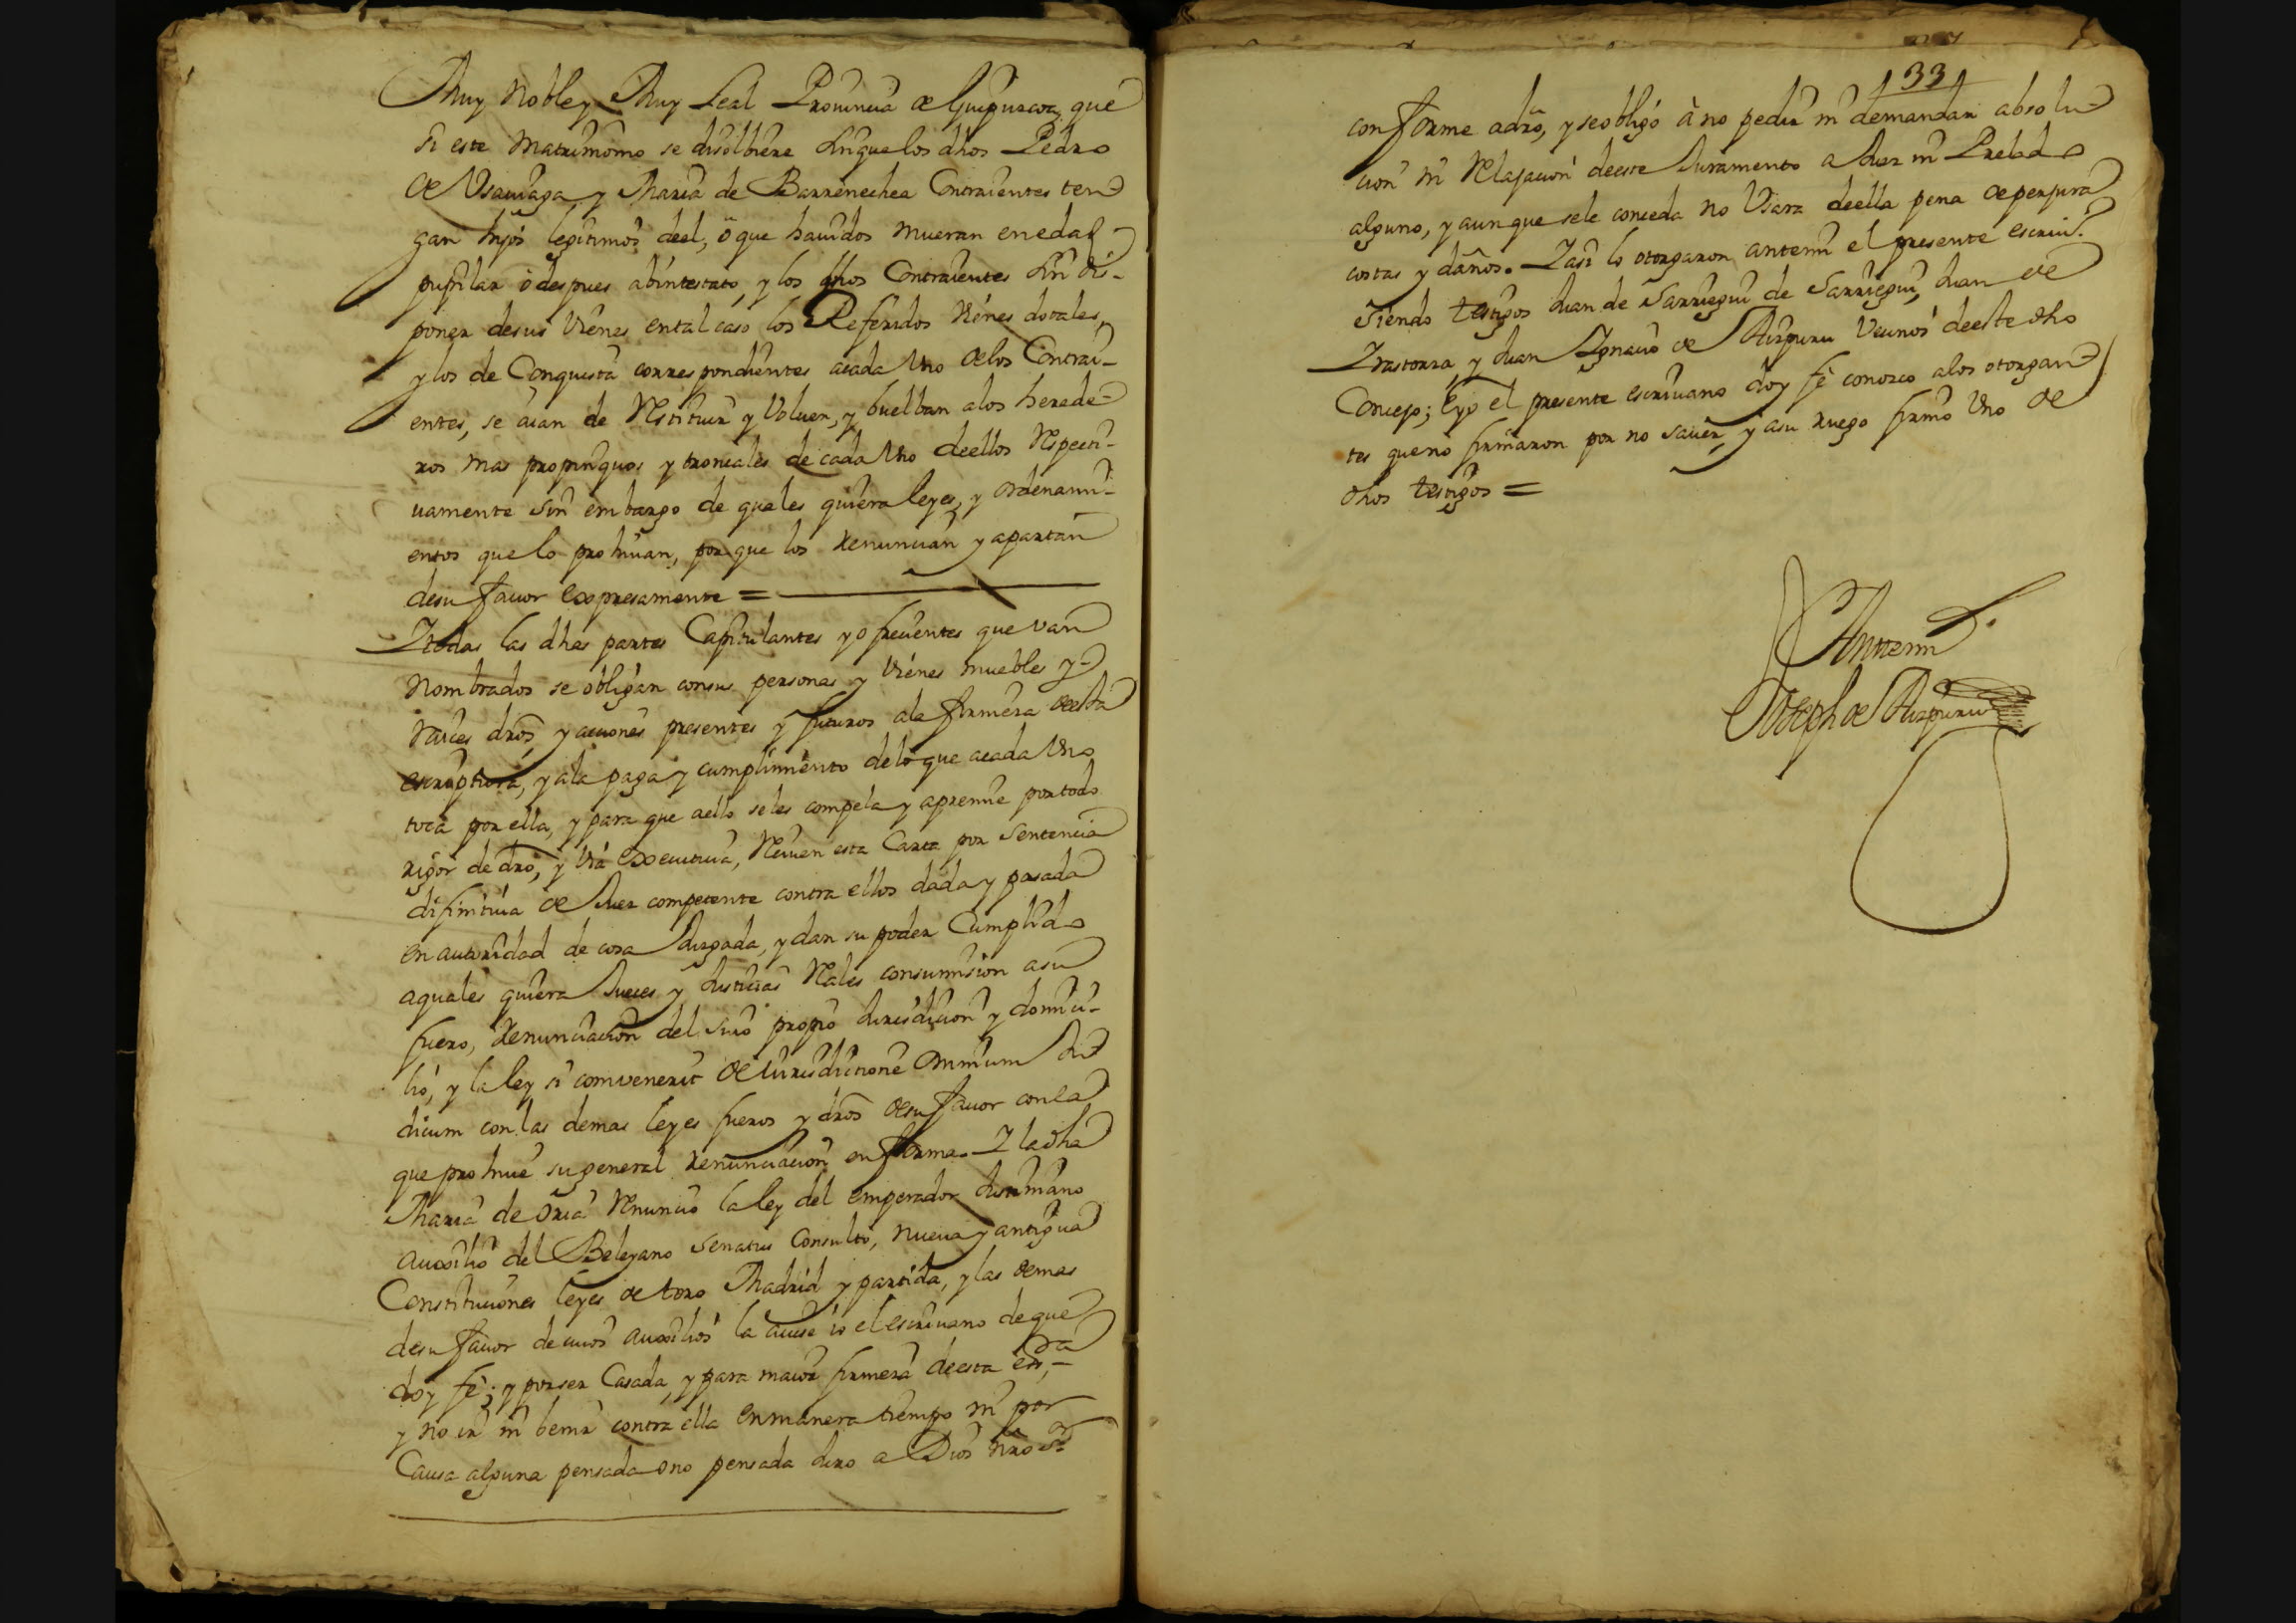 Muy Noble y Muy Leal Prouincia de Guipuzcoa, que
si este Matrimonio se disolbiere sin que los dhos Pedro
de Vsauiaga, y Maria de Barrenechea Contraientes ten=
gan hijos legitimos deel, ô que hauidos mueran en edad
pupilar ô despues abintestato, y los dhos Contraientes sin dis-
poner desus Vienes en tal caso los Referidos Vienes dotales,
y los de Conquista correspondientes acada Vno delos Contrai-
entes, se aian de Restituir y Voluer, y buelban alos herede=
ros mas propinquos y troncales de cada Vno deellos Respecti-
uamente sin embargo de quales quiera leyes, y ordenami-
entos que lo prohiuan, porque los renuncian y apartan
desu fauor expresamente =
Y todas las dhas partes Capitulantes y ofrecientes que van
Nombrados se obligan consus personas y Vienes muebles y=
Raices dros, y acciones presentes y futuros ala firmeza deesta
escriptura, y ala paga y cumplimiento delo que acada Vno
toca por ella, y para que aello seles compela y apremie por todo
rigor de dro, y Via executiua, Reciuen esta Carta por Sentencia
difinitiua de Juez competente contra ellos dada y pasada
en autoridad de cosa Juzgada, y dan su poder Cumplido
aquales quiera Jueces y Justicias Rales consumision asu
fuero, renunciacion del suio propio Jurisdicion y domici-
lio, y la ley si convenerit de iurisdictione omnium Ju=
dicum con las demas leyes fueros y dros desu fauor conla
que prohiue su general renunciacion en forma. Y la dha
Maria de Oria Renuncio la ley del emperador Justiniano
auxilio del Beleyano Senatus Consulto, nueua y antigua
Constituciones leyes de toro Madrid y partida, y las demas
desu fauor de cuios auxilios la auise io el escriuano de que
doy fe; y por ser Casada, y para maior firmeza deesta essra,
y no ir ni benir contra ella en manera tiempo ni por
Causa alguna pensada o no pensada Juro a Dios nro Sor
33
conforme adro, y se obligó à no pedir ni demandar absolu=
cion ni Relajacion deeste Juramento a Juez ni Prelado
alguno, y aunque sele conceda no Vsara deella pena de perjura
costas y daños. Y asi lo otorgaron antemi el presente escriuo.
siendo testigos Juan de Sarriegui de Sarriegui, Juan de
Yrastorza, y Juan Ygnacio de Aizpuru Vecinos deeste dho
Concejo; E yo el presente escriuano doy fe conozco alos otorgan=
tes que no firmaron por no sauer, y asu ruego firmó Vno de
dhos testigos =
Antemi
Joseph de Aizpuru